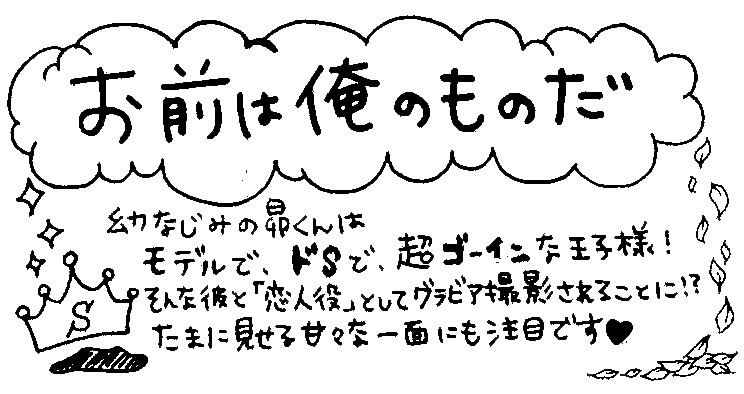 お前は俺のものだ
幼なじみの昴くんは
モデルで、ドSで、超ゴーインな王子様！
そんな彼と「恋人役」としてグラビア撮影されることに!?
たまに見せる甘々な一面にも注目です♥
S